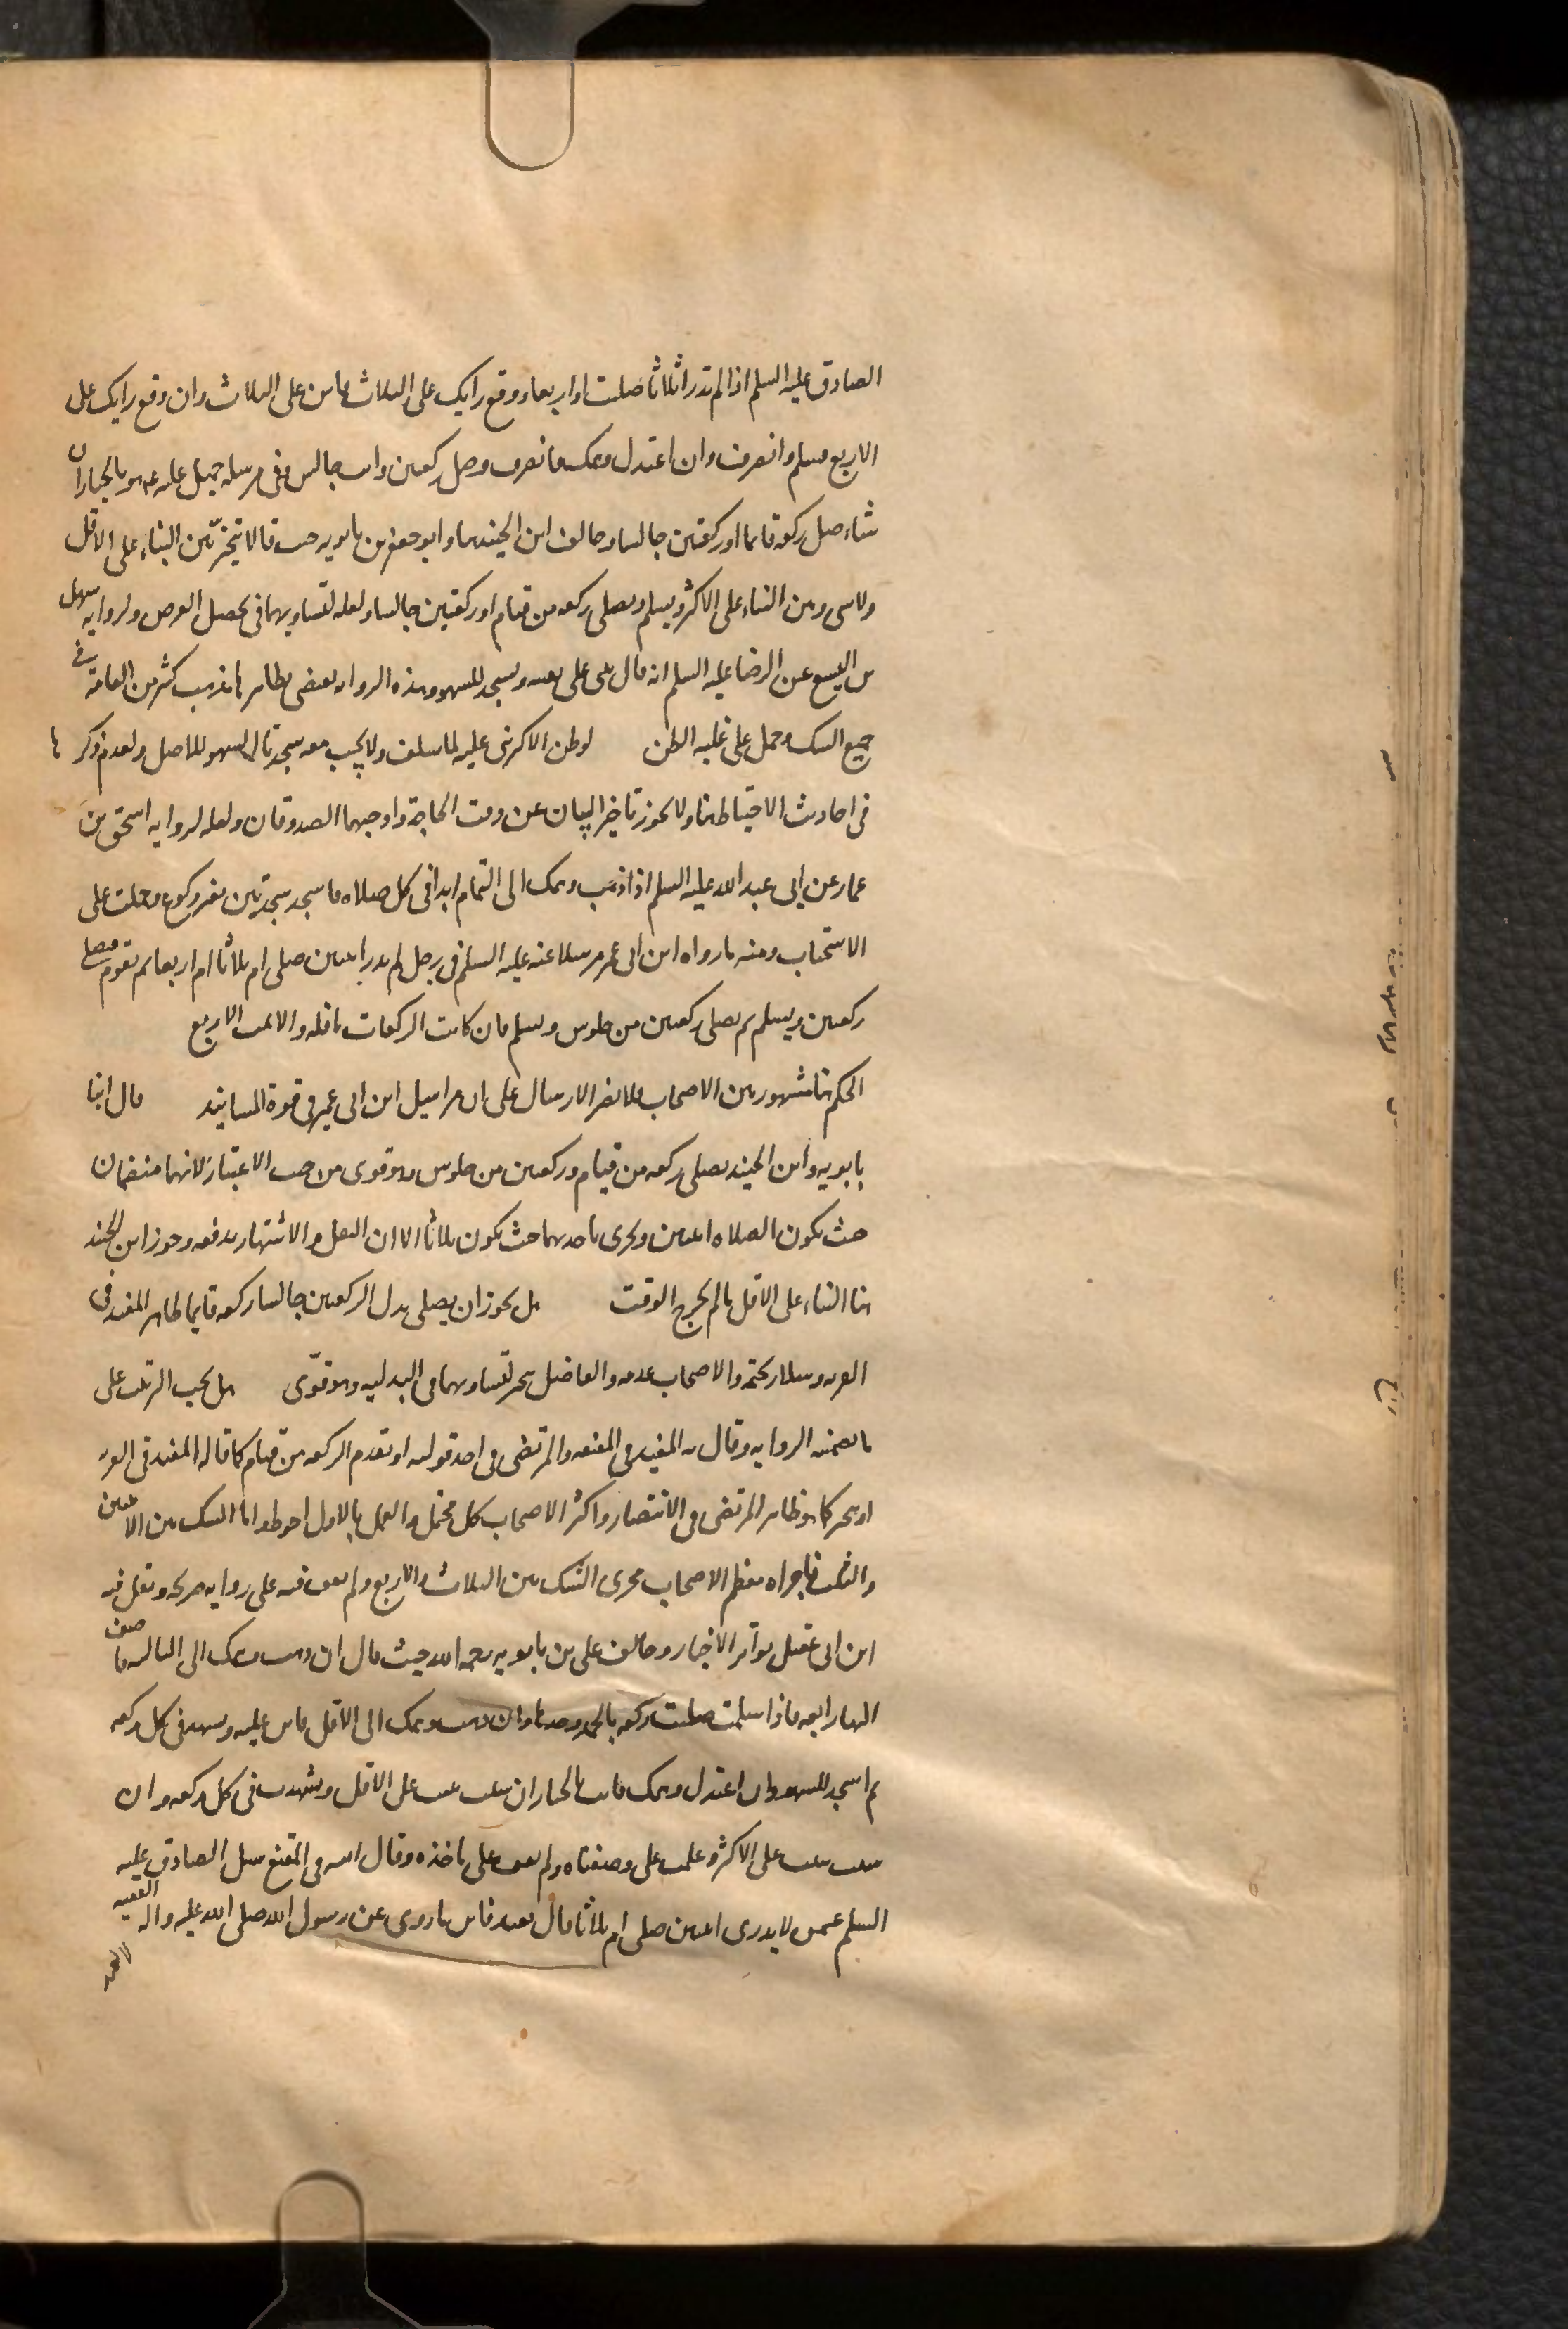 الصادق عليه السلم اذا لم تدر اثلاثا صليت او اربعا ووقع رايك على الثلاث فابن على الثلاث وان وقع رايك على
الاربع فسلم وانصرف وان اعتدل وهمك فانصرف وصل ركعتين وانت جالس وفي مرسله جميل عنه عم هو بالخيار ان
شاء صلى ركعه قايما او ركعتين جالسا وخالف ابن الجنيد هنا وابو جعفر بن بابويه حيث قالا بتخير بين البناء على الاقل
ولا شى وبين البناء على الاكثر ويسلم ويصلى ركعه من قيام او ركعتين جالسا ولعله لتساويهما فى تحصيل الغرض ولروايه سهل
بن اليسع عن الرضا عليه السلم انه قال يبنى على يقينه ويسجد للسهو وهذه الروايه يعضى بظاهرها مذهب كثير من العامة فى
جميع الشك وحمل على غلبه الظن لو ظن الاكثر بنى عليه لما سلف ولا يجب معه سجدتا السهو للاصل ولعدم ذكرها
فى احاديث الاحتياط هنا ولا يجوز تاخير البيان عن وقت الحاجة واوجبهما الصدوقان ولعله لروايه اسحق بن
عمار عن ابى عبد الله عليه السلم اذا ذهب وهمك الى التمام ابدا فى كل صلاه فاسجد سجدتين بغير ركوع وحملت على
الاستحباب ومنه ما رواه ابن ابى عمير مرسلا عنه عليه السلم فى رجل لم يدر اثنتين صلى ام ثلاثا ام اربعا ثم يقوم فيصلى
ركعتين ويسلم ثم يصلى ركعتين من جلوس ويسلم فان كانت الركعات نافله والا تمت الاربع
الحكم هنا مشهور بين الاصحاب فلا يضر الارسال على ان مراسيل ابن ابى عمير فى قوة المسانيد قال ابنا
بابويه وابن الجنيد يصلى ركعه من قيام وركعتين من جلوس وهو قوى من حيث الاعتبار لانهما منضمان
حيث تكون الصلاه اثنتين ويجرى باحدهما حيث تكون ثلاثا الا ان النقل والاشتهار يدفعه وجوز ابن الجنيد
هنا البناء على الاقل ما لم يخرج الوقت هل يجوز ان يصلى بدل الركعتين جالسا ركعه قايما ظاهر المفيد فى
الغريه وسلار تحتمه والاصحاب عدمه والفاضل يخير لتساويهما فى البدليه وهو قوى هل يجب الترتيب على
ما تضمنه الروايه وقال به المفيد فى المقنعه والمرتضى فى احد قوليه او تقدم الركعه من قيام كما قاله المفيد فى الغريه
او يتخير كما هو ظاهر المرتضى فى الانتصار واكثر الاصحاب كل محتمل والعمل بالاول احوط واما الشك بين الاثنين
والثلث فاجراه معظم الاصحاب مجرى الشك بين الثلاث والاربع ولم نقف فيه على روايه صريحه ونقل فيه
ابن ابى عقيل تواتر الاخبار وخالف على بن بابويه رحمه الله حيث قال ان ذهب وهمك الى الثالثه فاضف
اليها رابعه فاذا سلمت صليت ركعه بالحمد وحدها وان ذهب وهمك الى الاقل فابن عليه وتشهد فى كل ركعه
ثم اسجد للسهو وان اعتدل وهمك فانت بالخيار ان شئت بنيت على الاقل وتشهدت فى كل ركعه وان
شئت بنيت على الاكثر وعملت على وصفناه ولم نقف على ماخذه وقال ابنه فى المقنع سئل الصادق عليه
السلم عمن لا يدرى اثنتين صلى ام ثلاثا قال يعيد فاين ما روى عن رسول الله صلى الله عليه واله الفقيه
لا يعيد